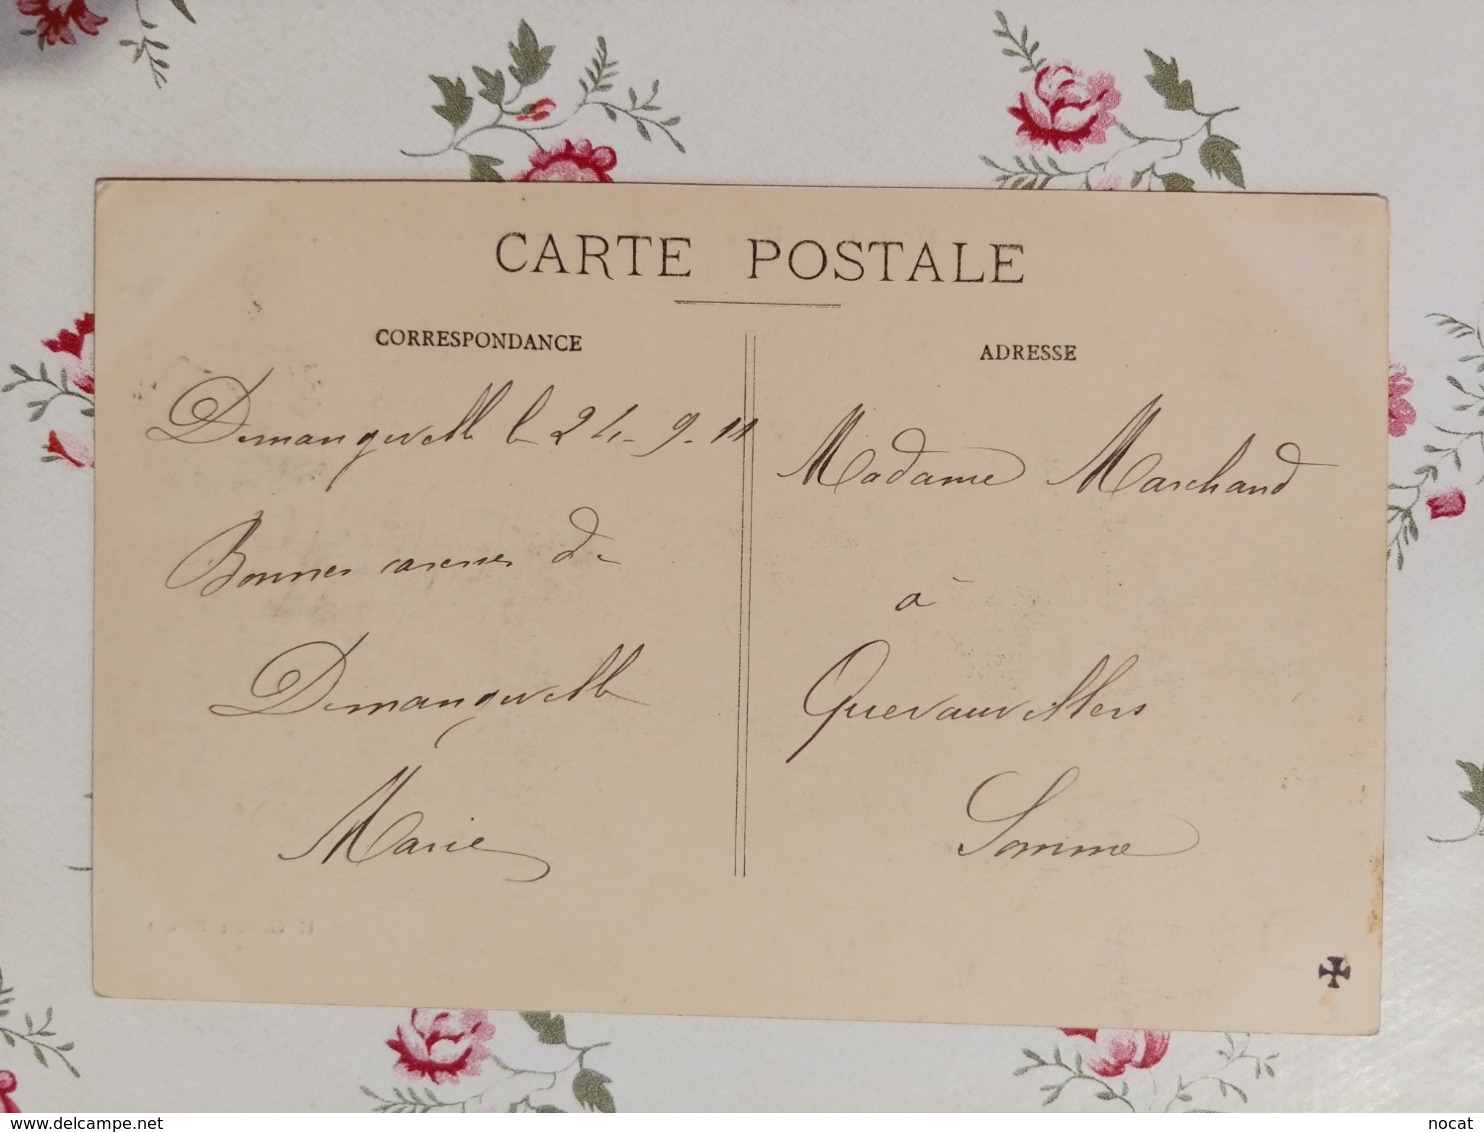 CARTE POSTALE
CORRESPONDANCE
Demangeville le 24-9-11
Bonnes caresses de
Demangeville
Marie
ADRESSE
Madame Marchand
à
Quevauvillers
Somme
www.delcampe.net
nocat